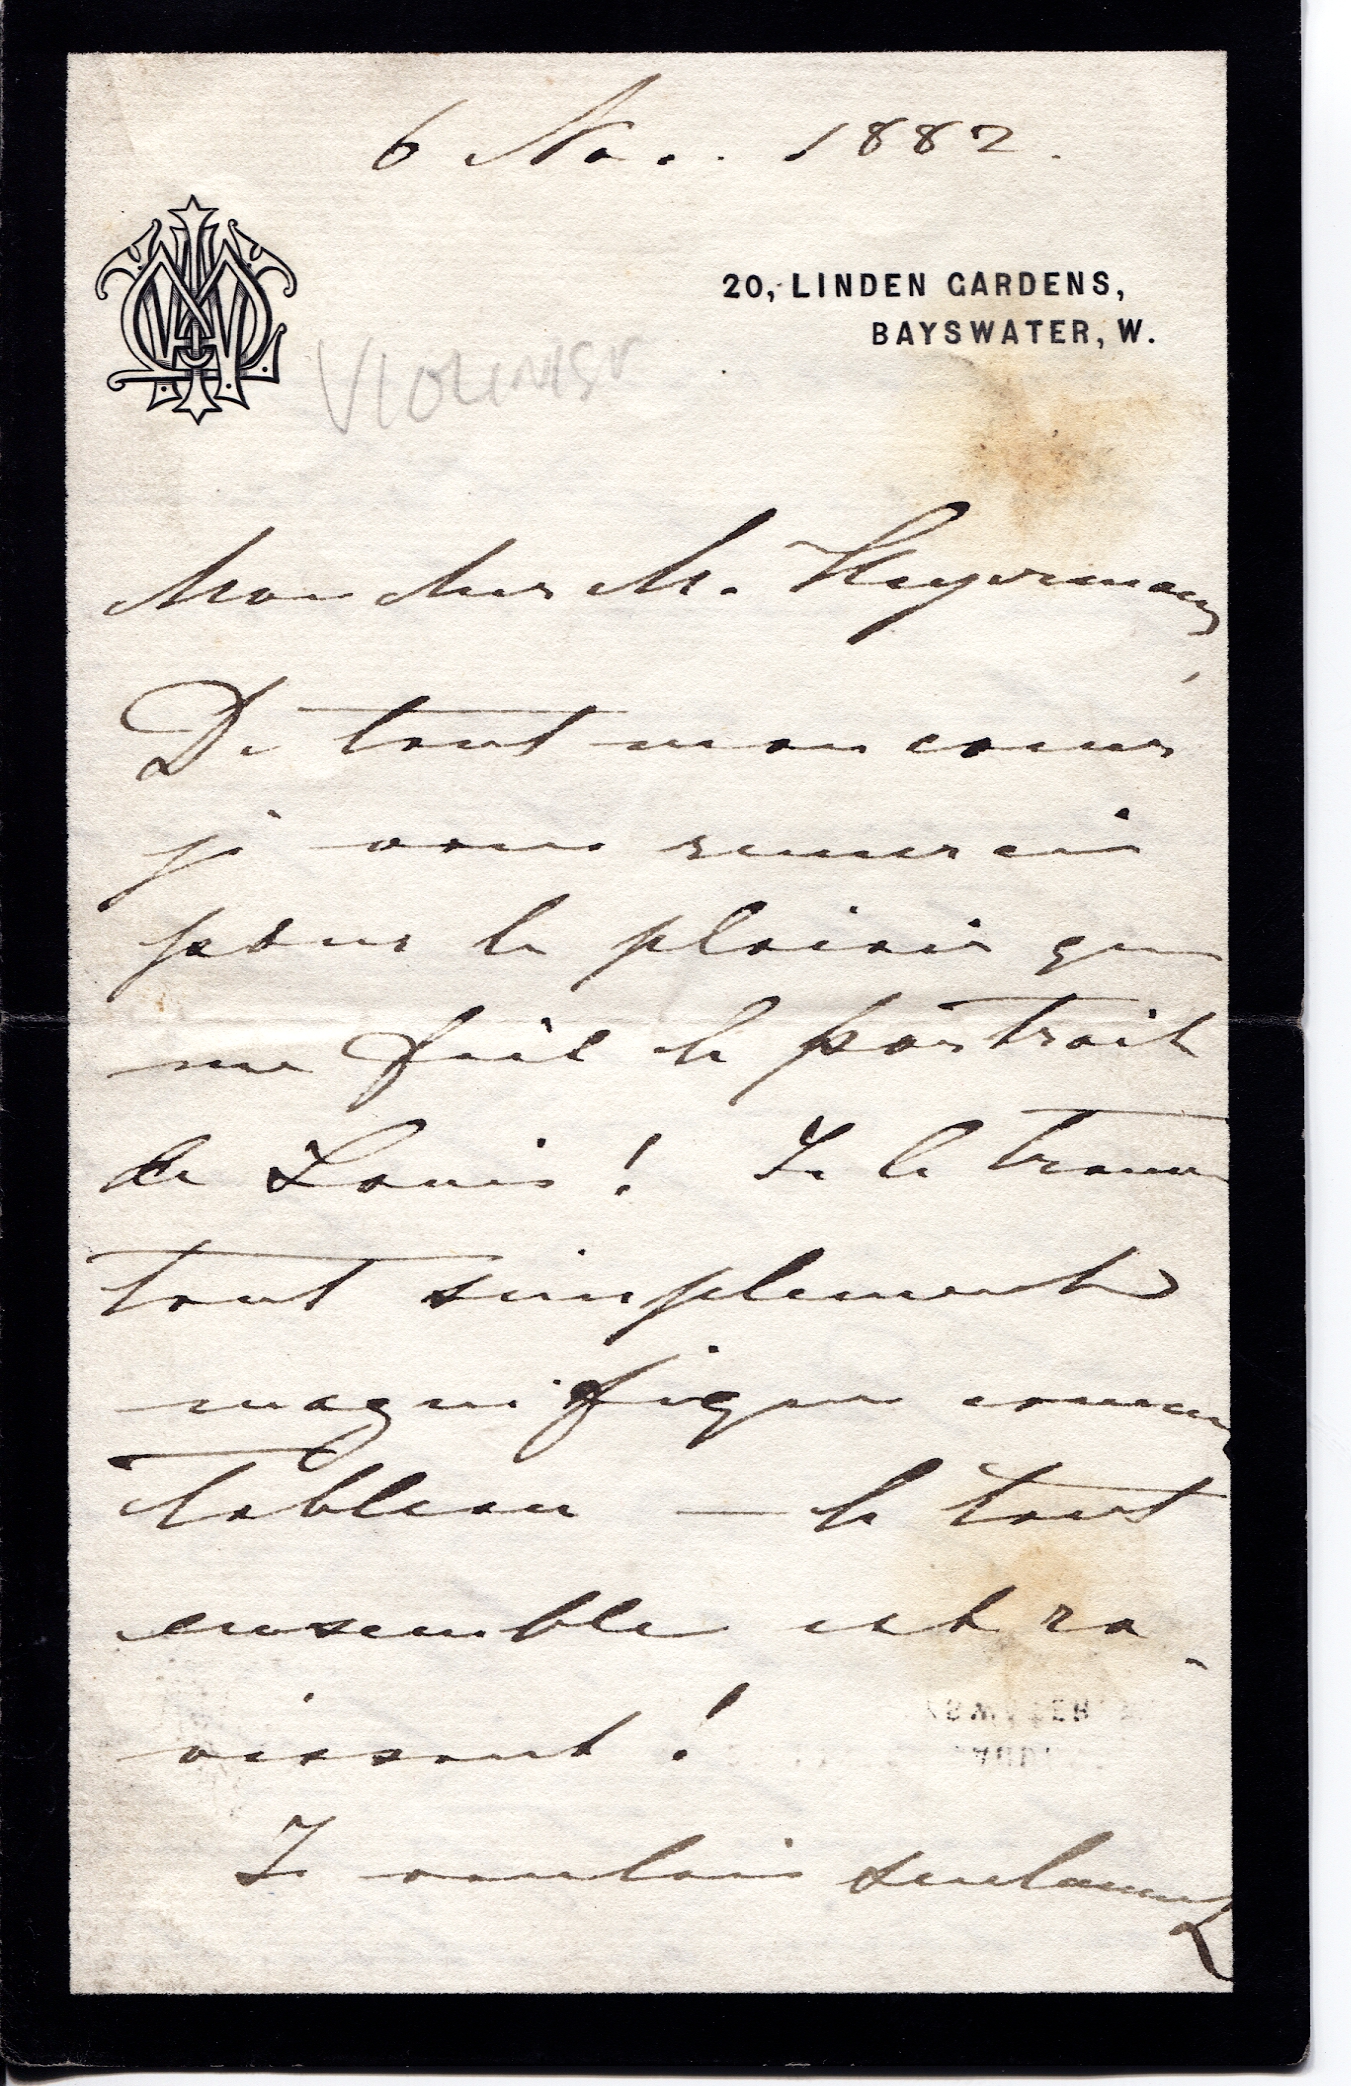 6 Nov. 1882.
20, LINDEN GARDENS,
BAYSWATER, W.
VIOLINIST
Mon cher M. Heyermans,
De tout mon coeur
je vous remercie
pour le plaisir que
me fait le portrait
de Louis! Je le trouve
tout simplement
magnifique comme
tableau — le tout
ensemble est ra-
vissant!
Je voulais seulement